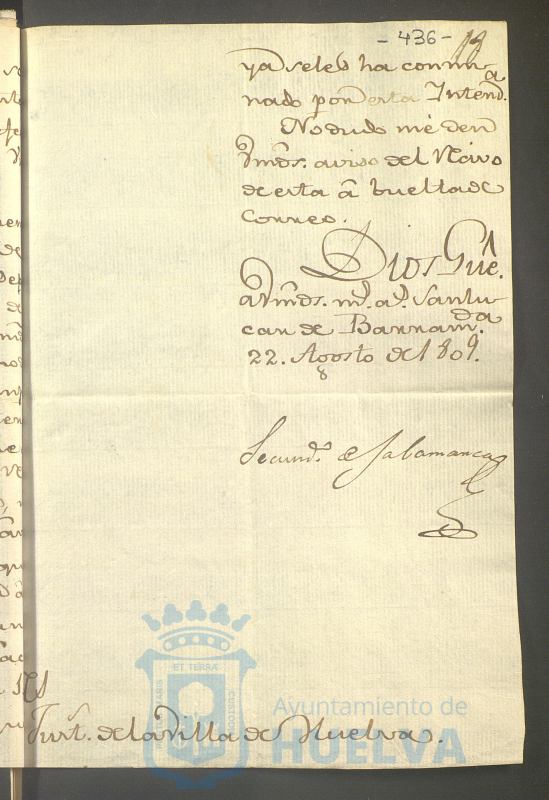 - 436 - 19
ya se les ha conmi-
nado p.r esta Intend.a
No dudo me den
Vmds. aviso del Rcivo
de esta â buelta de
Correo.
Dios Gûe.
â Vmds. m.s a.s Sanlu-
car de Barram.da
22. Agosto de 1809.
Secund.o de Salamanca
SS
Just.a de la Villa de Huelva.
ET TERRÆ
CUSTODIA
Ayuntamiento de
HUELVA